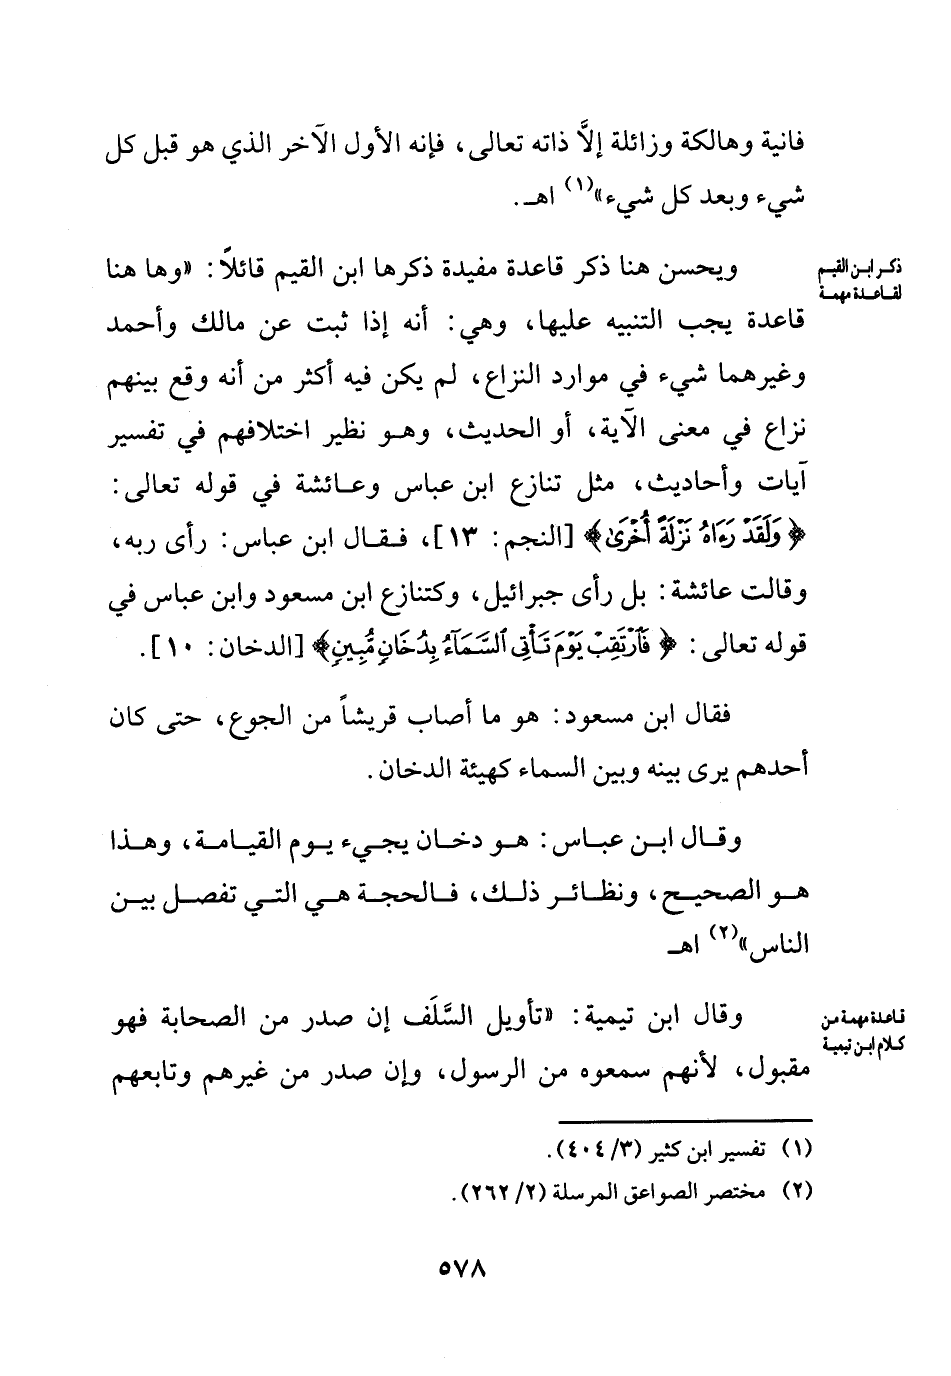 فانية وهالكة وزائلة إلَّا ذاته تعالى، فإنه الأول الآخر الذي هو قبل كل
شيء وبعد كل شيء»(١) اهـ.
ذكر ابن القيم
لقاعدة مهمة
ويحسن هنا ذكر قاعدة مفيدة ذكرها ابن القيم قائلاً: «وها هنا
قاعدة يجب التنبيه عليها، وهي: أنه إذا ثبت عن مالك وأحمد
وغيرهما شيء في موارد النزاع، لم يكن فيه أكثر من أنه وقع بينهم
نزاع في معنى الآية، أو الحديث، وهو نظير اختلافهم في تفسير
آيات وأحاديث، مثل تنازع ابن عباس وعائشة في قوله تعالى:
﴿وَلَقَدْ رَءَاهُ نَزْلَةً أُخْرَىٰ﴾ [النجم: ١٣]، فقال ابن عباس: رأى ربه،
وقالت عائشة: بل رأى جبرائيل، وكتنازع ابن مسعود وابن عباس في
قوله تعالى: ﴿فَارْتَقِبْ يَوْمَ تَأْتِي السَّمَآءُ بِدُخَانٍ مُّبِينٍ﴾ [الدخان: ١٠].
فقال ابن مسعود: هو ما أصاب قريشاً من الجوع، حتى كان
أحدهم يرى بينه وبين السماء كهيئة الدخان.
وقال ابن عباس: هو دخان يجيء يوم القيامة، وهذا
هو الصحيح، ونظائر ذلك، فالحجة هي التي تفصل بين
الناس»(٢) اهـ
قاعدة مهمة من
كلام ابن تيمية
وقال ابن تيمية: «تأويل السَّلَف إن صدر من الصحابة فهو
مقبول، لأنهم سمعوه من الرسول، وإن صدر من غيرهم وتابعهم
(١) تفسير ابن كثير (٣/ ٤٠٤).
(٢) مختصر الصواعق المرسلة (٢/ ٢٦٢).
٥٧٨